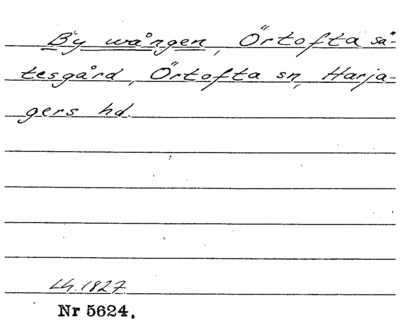 By wången, Örtofta sä-
tesgård, Örtofta sn, Harja-
gers hd.
Lh. 1827
Nr 5624.